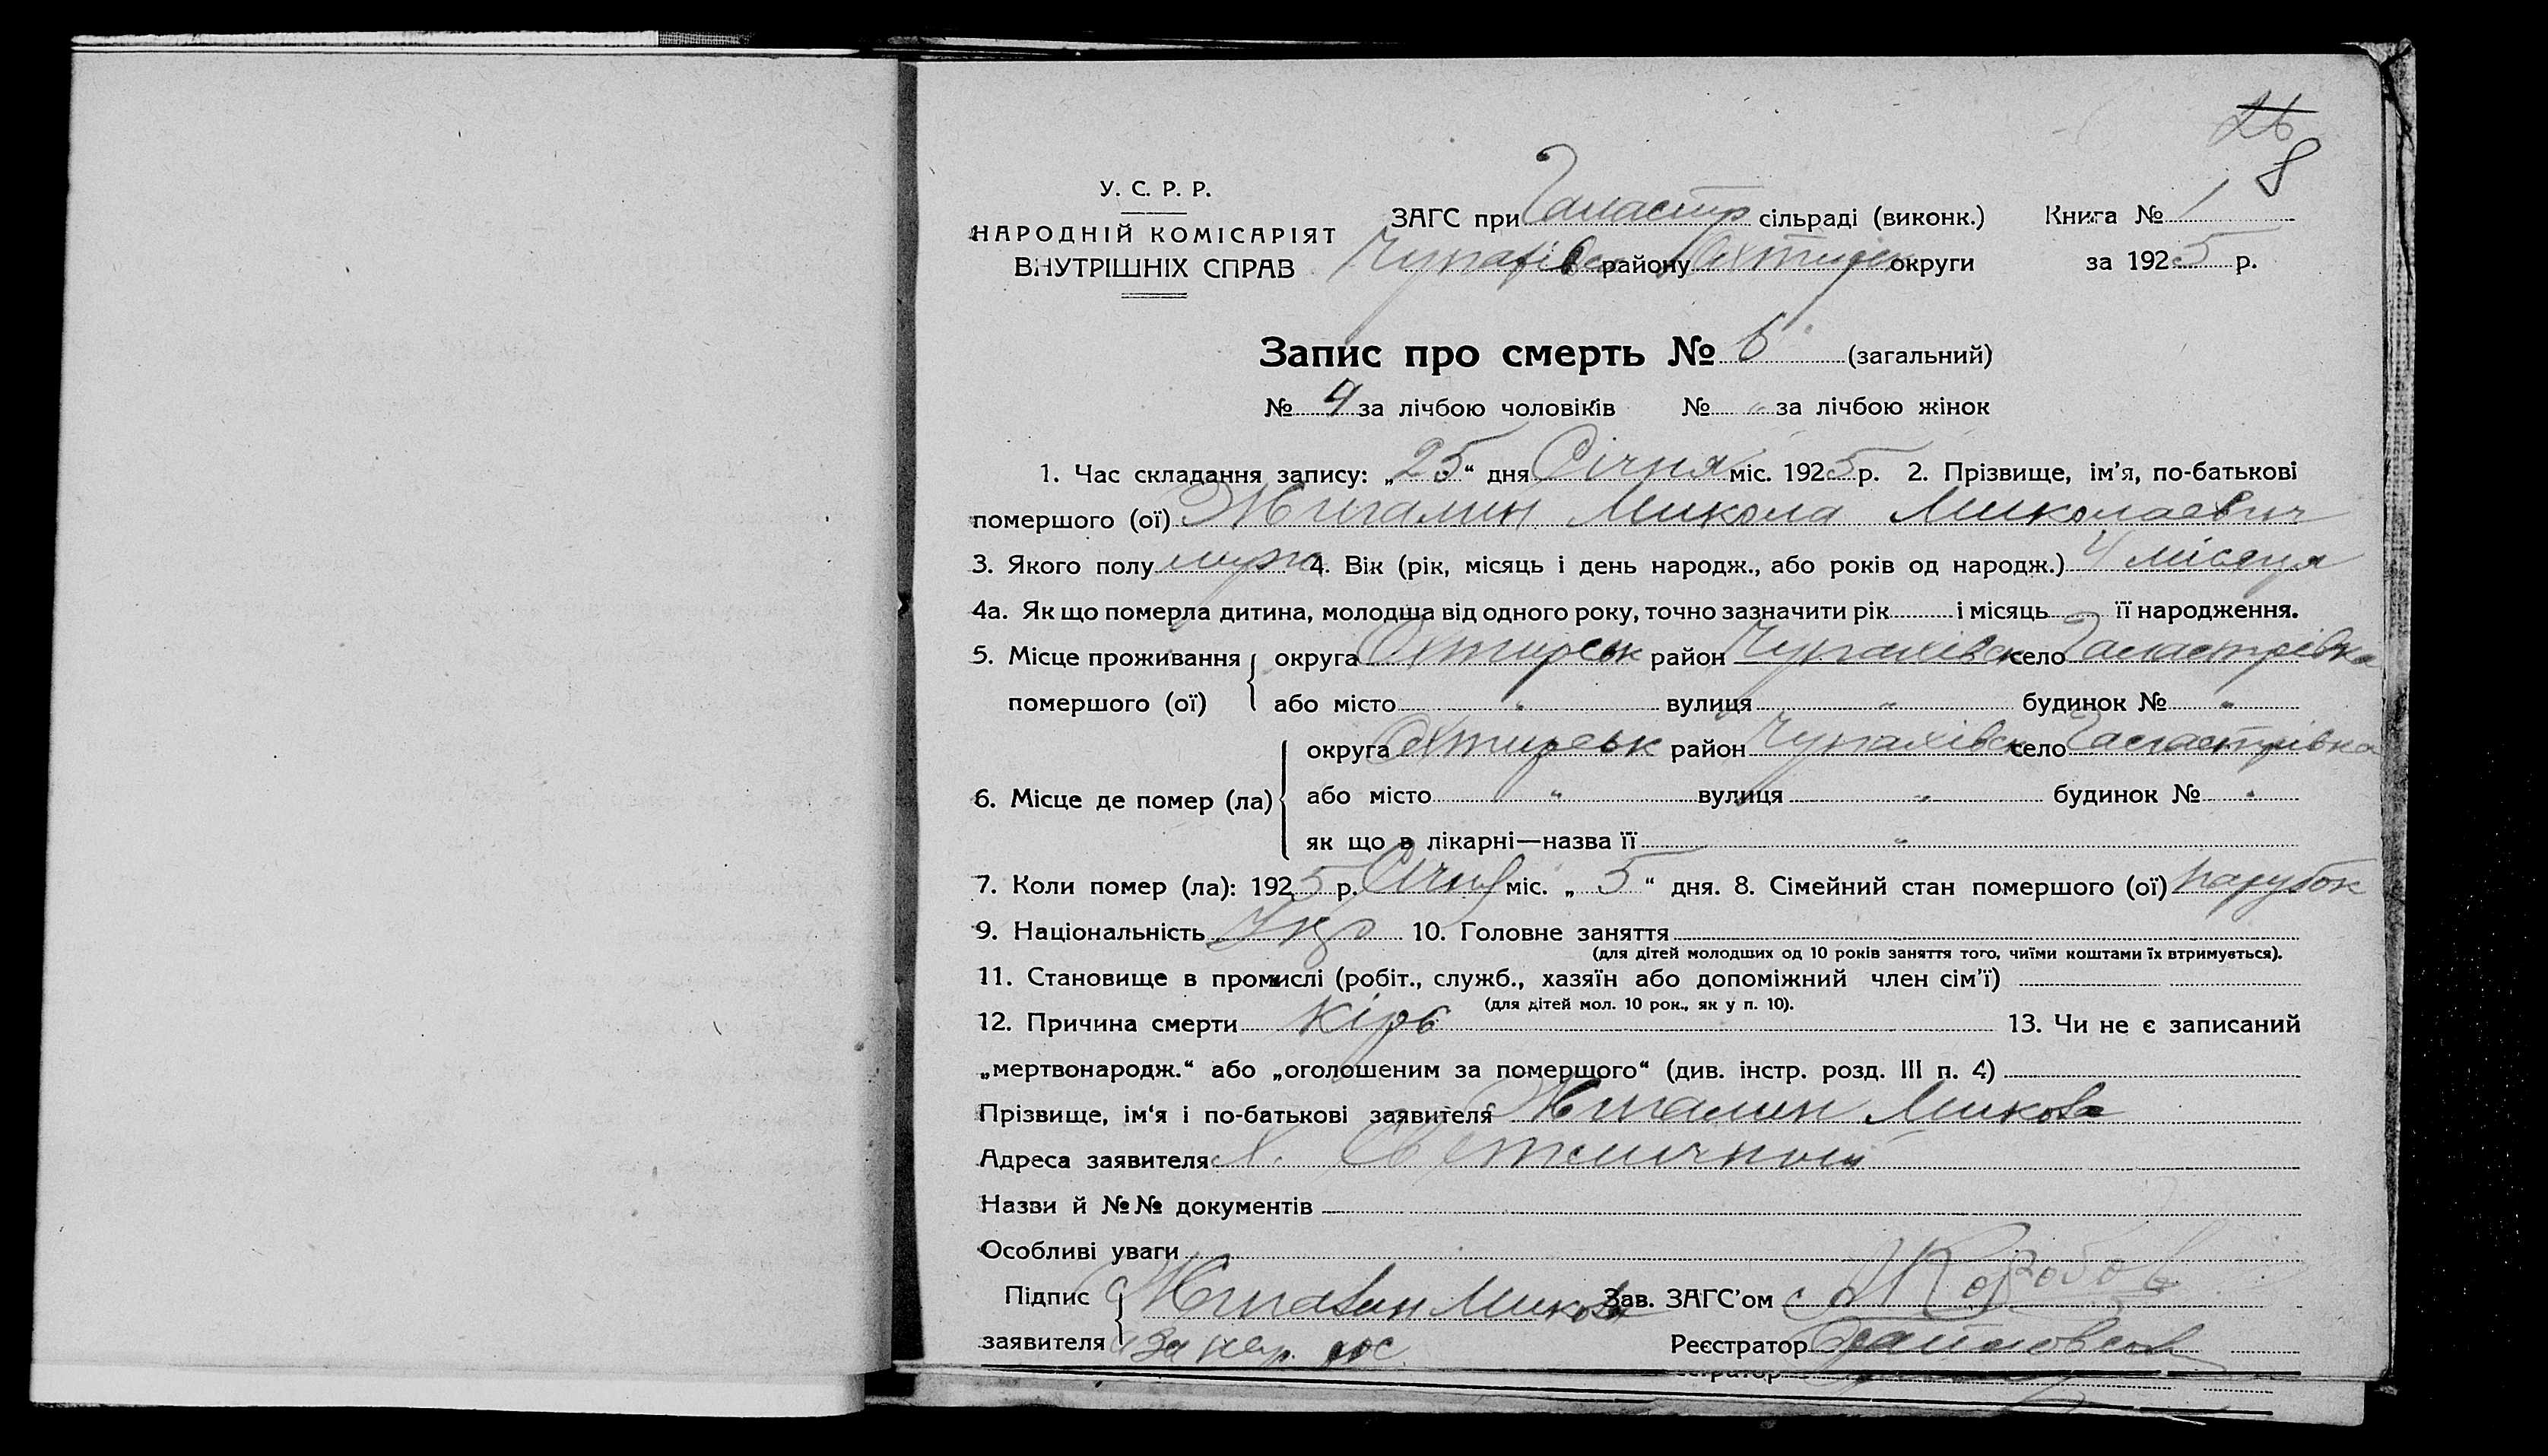 26
8
У. С. Р. Р.
НАРОДНІЙ КОМІСАРІЯТ
ВНУТРІШНІХ СПРАВ
ЗАГС при сільраді (виконк.) Книга № 1
району округи за 1925 р.
Запис про смерть № 6 (загальний)
№ 4 за лічбою чоловіків № „ за лічбою жінок
1. Час складання запису: „25“ дня Січня міс. 1925 р. 2. Прізвище, ім'я, по-батькові
помершого (ої) Жигалин Микола Миколаевич
3. Якого полу муж 4. Вік (рік, місяць і день народж., або років од народж.) 4 місяця
4а. Як що померла дитина, молодша від одного року, точно зазначити рік і місяць її народження.
5. Місце проживання округа Охтирськ район Чупахівск село
помершого (ої) або місто „ вулиця „ будинок № „
6. Місце де помер (ла) округа Охтирськ район Чупахівск село
або місто „ вулиця „ будинок № „
як що в лікарні—назва її „
7. Коли помер (ла): 1925 р. Січня міс. „ 5 “ дня. 8. Сімейний стан помершого (ої) парубок
9. Національність Укр 10. Головне заняття
(для дітей молодших од 10 років заняття того, чиїми коштами їх втримується).
11. Становище в промислі (робіт., служб., хазяїн або допоміжний член сім'ї)
(для дітей мол. 10 рок., як у п. 10).
12. Причина смерти кірь 13. Чи не є записаний
„мертвонародж.“ або „оголошеним за помершого“ (див. інстр. розд. III п. 4)
Прізвище, ім'я і по-батькові заявителя Жигалин Микола
Адреса заявителя х.
Назви й №№ документів
Особливі уваги
Підпис Жигалин Микола Зав. ЗАГС'ом
заявителя за Реєстратор